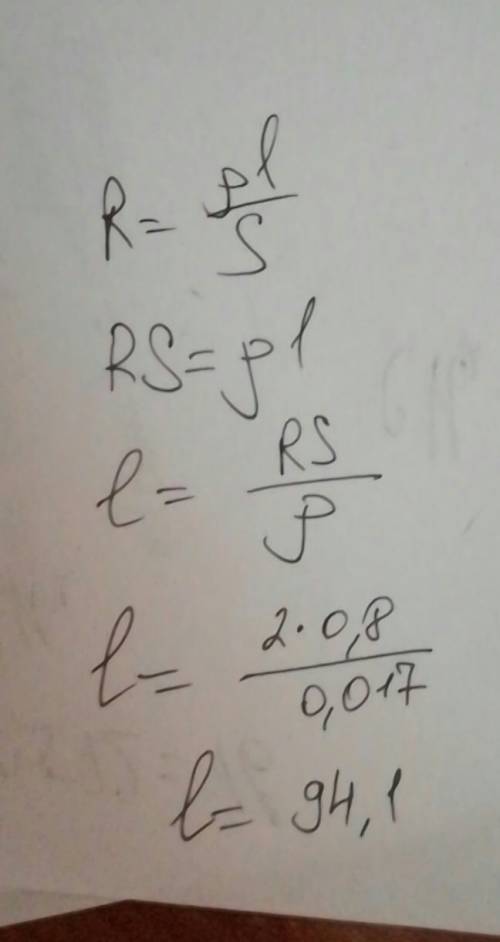 R = ρl/S
RS = ρl
l = RS/ρ
l = 2·0,8/0,017
l = 94,1